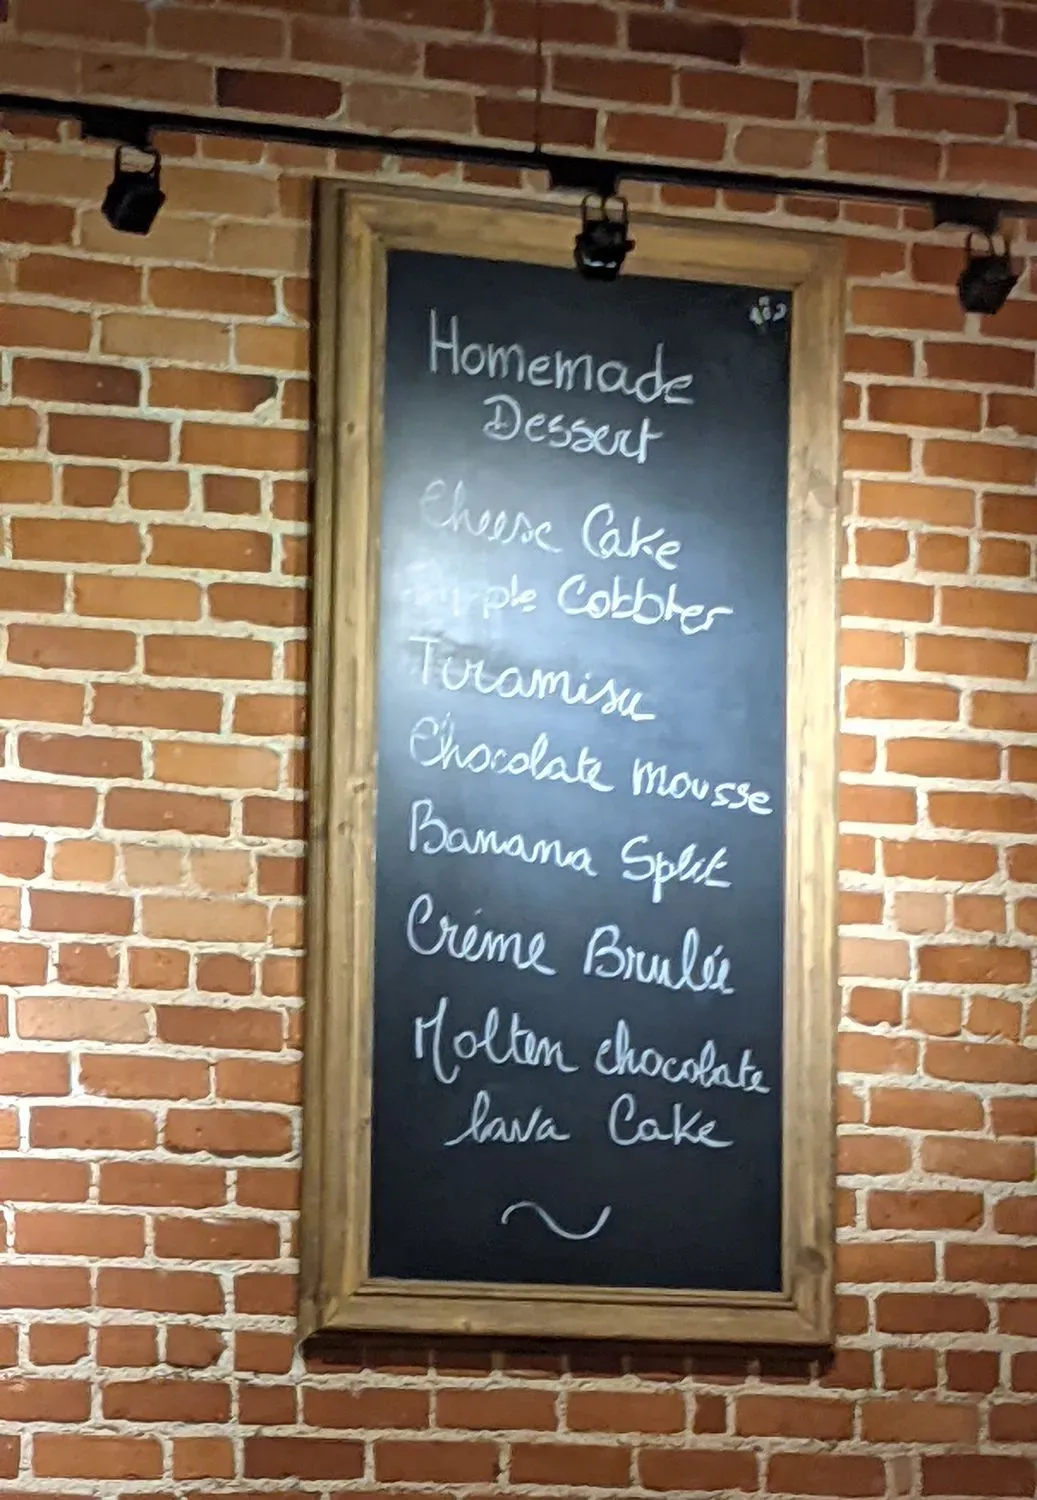 Homemade
Dessert
Cheese Cake
Apple Cobbler
Tiramisu
Chocolate mousse
Banana Split
Créme Brulée
Molten chocolate
lava Cake